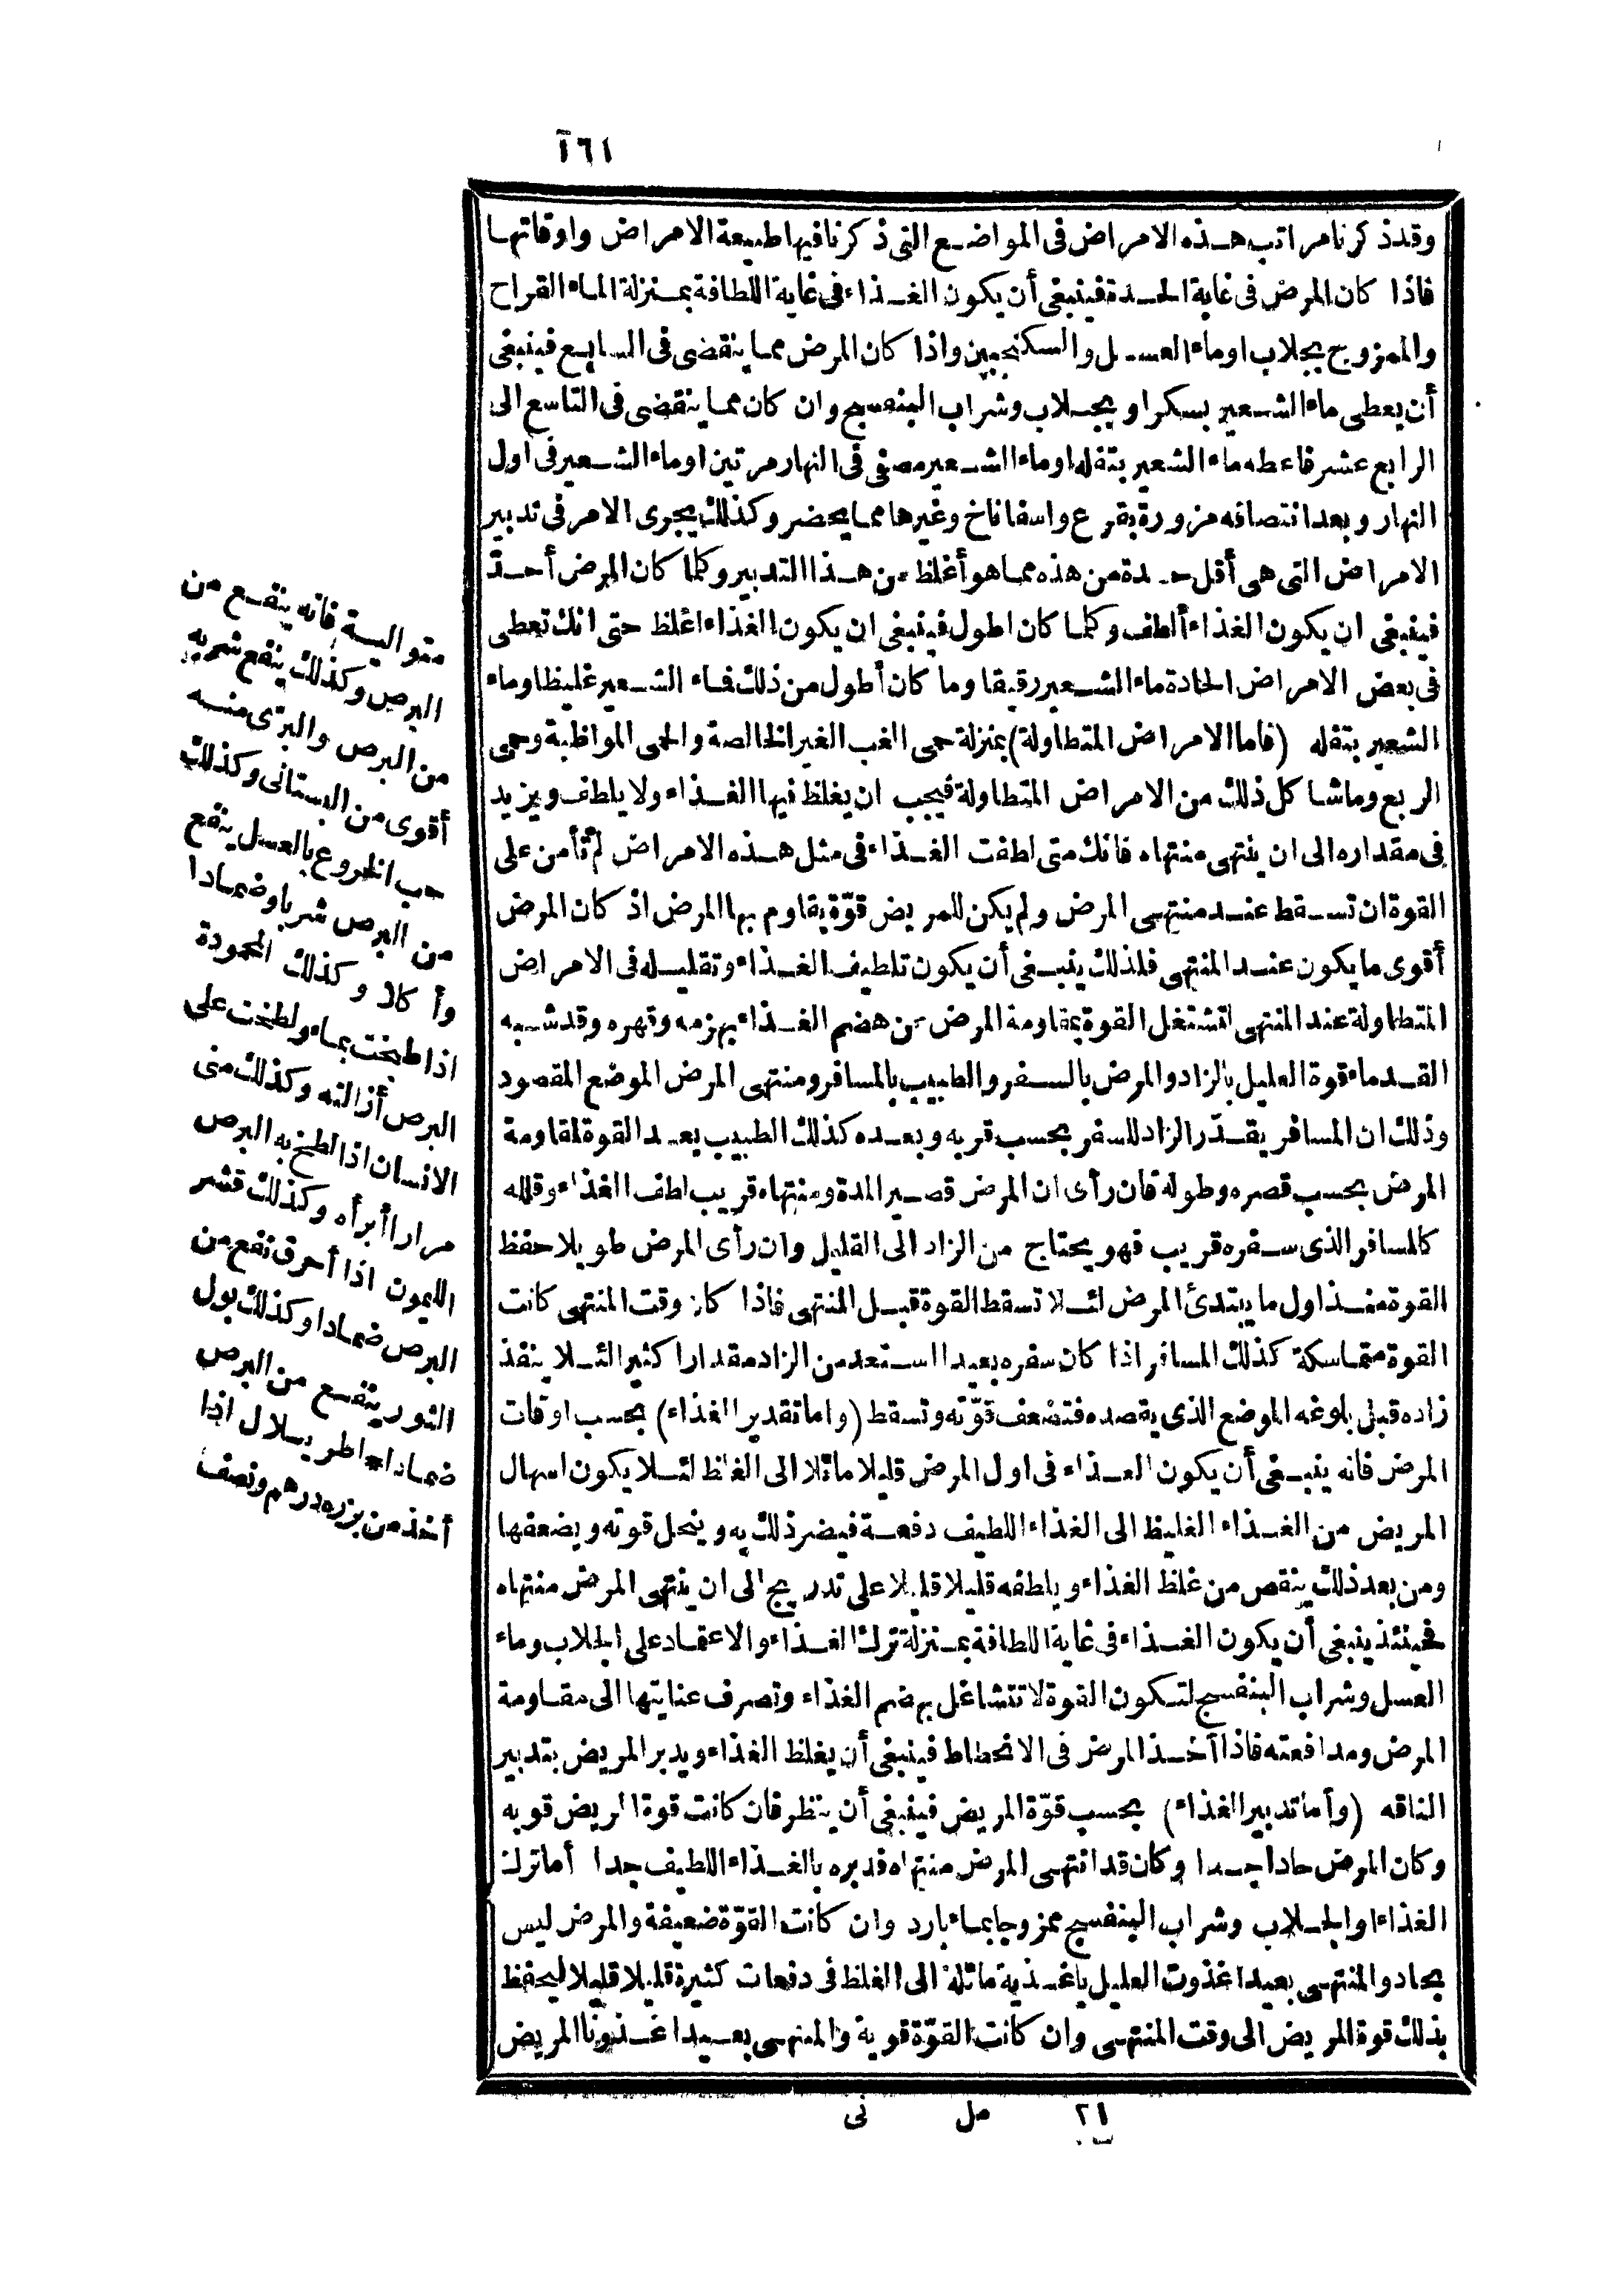 ١٦١
وقد ذكرنا مراتب هذه الامراض في المواضع التي ذكرنا فيها طبيعة الامراض واوقاتها
فاذا كان المرض في غاية الحدة فينبغي أن يكون الغذاء في غاية اللطافة بمنزلة الماء القراح
والممزوج بجلاب او ماء العسل والسكنجبين واذا كان المرض مما ينقضي في السابع فينبغي
أن يعطى ماء الشعير بسكر او بجلاب وشراب البنفسج وان كان مما ينقضي في التاسع الى
الرابع عشر فاعطه ماء الشعير بثفله او ماء الشعير مصفى في النهار مرتين او ماء الشعير في اول
النهار وبعد انتصافه مزورة بقرع واسفاناخ وغيرها مما يحضر وكذلك يجرى الامر في تدبير
الامراض التي هي أقل حدة من هذه مما هو أغلظ من هذا التدبير وكلما كان المرض أحدّ
فينبغي ان يكون الغذاء ألطف وكلما كان اطول فينبغي ان يكون الغذاء اغلظ حتى انك تعطى
في بعض الامراض الحادة ماء الشعير رقيقا وما كان أطول من ذلك فماء الشعير غليظا وماء
الشعير بثفله (فاما الامراض المتطاولة) بمنزلة حمى الغب الغير الخالصة والحمى المواظبة وحمى
الربع وماشا كل ذلك من الامراض المتطاولة فيجب ان يغلظ فيها الغذاء ولا يلطف ويزيد
في مقداره الى ان ينتهى منتهاه فانك متى لطفت الغذاء في مثل هذه الامراض لم تأمن على
القوة ان تسقط عند منتهى المرض ولم يكن للمريض قوّة يقاوم بها المرض اذ كان المرض
أقوى ما يكون عند المنتهى فلذلك ينبغي أن يكون تلطيف الغذاء وتقليله في الامراض
المتطاولة عند المنتهى لتشتغل القوة بمقاومة المرض عن هضم الغذاء بهزمه وقهره وقد شبه
القدماء قوة العليل بالزاد والمرض بالسفر والطبيب بالمسافر ومنتهى المرض الموضع المقصود
وذلك ان المسافر يقدّر الزاد للسفر بحسب قربه وبعده كذلك الطبيب يعد القوة لمقاومة
المرض بحسب قصره وطوله فان رأى ان المرض قصير المدة ومنتهاه قريب لطف الغذاء وقلله
كالمسافر الذى سفره قريب فهو يحتاج من الزاد الى القليل وان رأى المرض طويلا حفظ
القوة منذ اول ما يبتدئ المرض لئلا تسقط القوة قبل المنتهى فاذا كان وقت المنتهى كانت
القوة متماسكة كذلك المسافر اذا كان سفره بعيدا استعد من الزاد مقدارا كثيرا لئلا ينفذ
زاده قبل بلوغه الموضع الذى يقصده فتضعف قوّته وتسقط (واما تقدير الغذاء) بحسب اوقات
المرض فانه ينبغي أن يكون الغذاء في اول المرض قليلا مائلا الى الغلظ لئلا يكون اسهال
المريض من الغذاء الغليظ الى الغذاء اللطيف دفعة فيضر ذلك به وينحل قوته ويضعفها
ومن بعد ذلك ينقص من غلظ الغذاء ويلطفه قليلا قليلا على تدريج الى ان ينتهى المرض منتهاه
فحينئذ ينبغي أن يكون الغذاء في غاية اللطافة بمنزلة ترك الغذاء والاعتماد على الجلاب وماء
العسل وشراب البنفسج لتكون القوة لا تتشاغل بهضم الغذاء وتصرف عنايتها الى مقاومة
المرض ومدافعته فاذا آخذ المرض في الانحطاط فينبغي أن يغلظ الغذاء ويدبر المريض بتدبير
الناقه (وأما تدبير الغذاء) بحسب قوّة المريض فينبغي أن ينظر فان كانت قوة المريض قويه
وكان المرض حادا جدا وكان قد انتهى المرض منتهاه فدبره بالغذاء اللطيف جدا أما ترك
الغذاء او الجلاب وشراب البنفسج ممزوجا بماء بارد وان كانت القوّة ضعيفة والمرض ليس
بحاد والمنتهى بعيدا غذوت العليل باغذية مائلة الى الغلظ في دفعات كثيرة قليلا قليلا ليحفظ
بذلك قوة المريض الى وقت المنتهى وان كانت القوّة قوية والمنتهى بعيدا غذونا المريض
متوالية فانه ينفع من
البرص وكذلك ينفع شربه
من البرص والبرّى منه
أقوى من البستانى وكذلك
حب الخروع بالعسل ينفع
من البرص شربا وضمادا
وأكلا وكذلك المحمودة
اذا طبخت بماء ولطخت على
البرص أزالته وكذلك منى
الانسان اذا لطخ به البرص
مرارا أبرأه وكذلك قشر
الليمون اذا أحرق نفع من
البرص ضمادا وكذلك بول
الثور ينفع من البرص
ضمادا * اطريلال اذا
أخذ من بزره درهم ونصف
٢١ مل نى